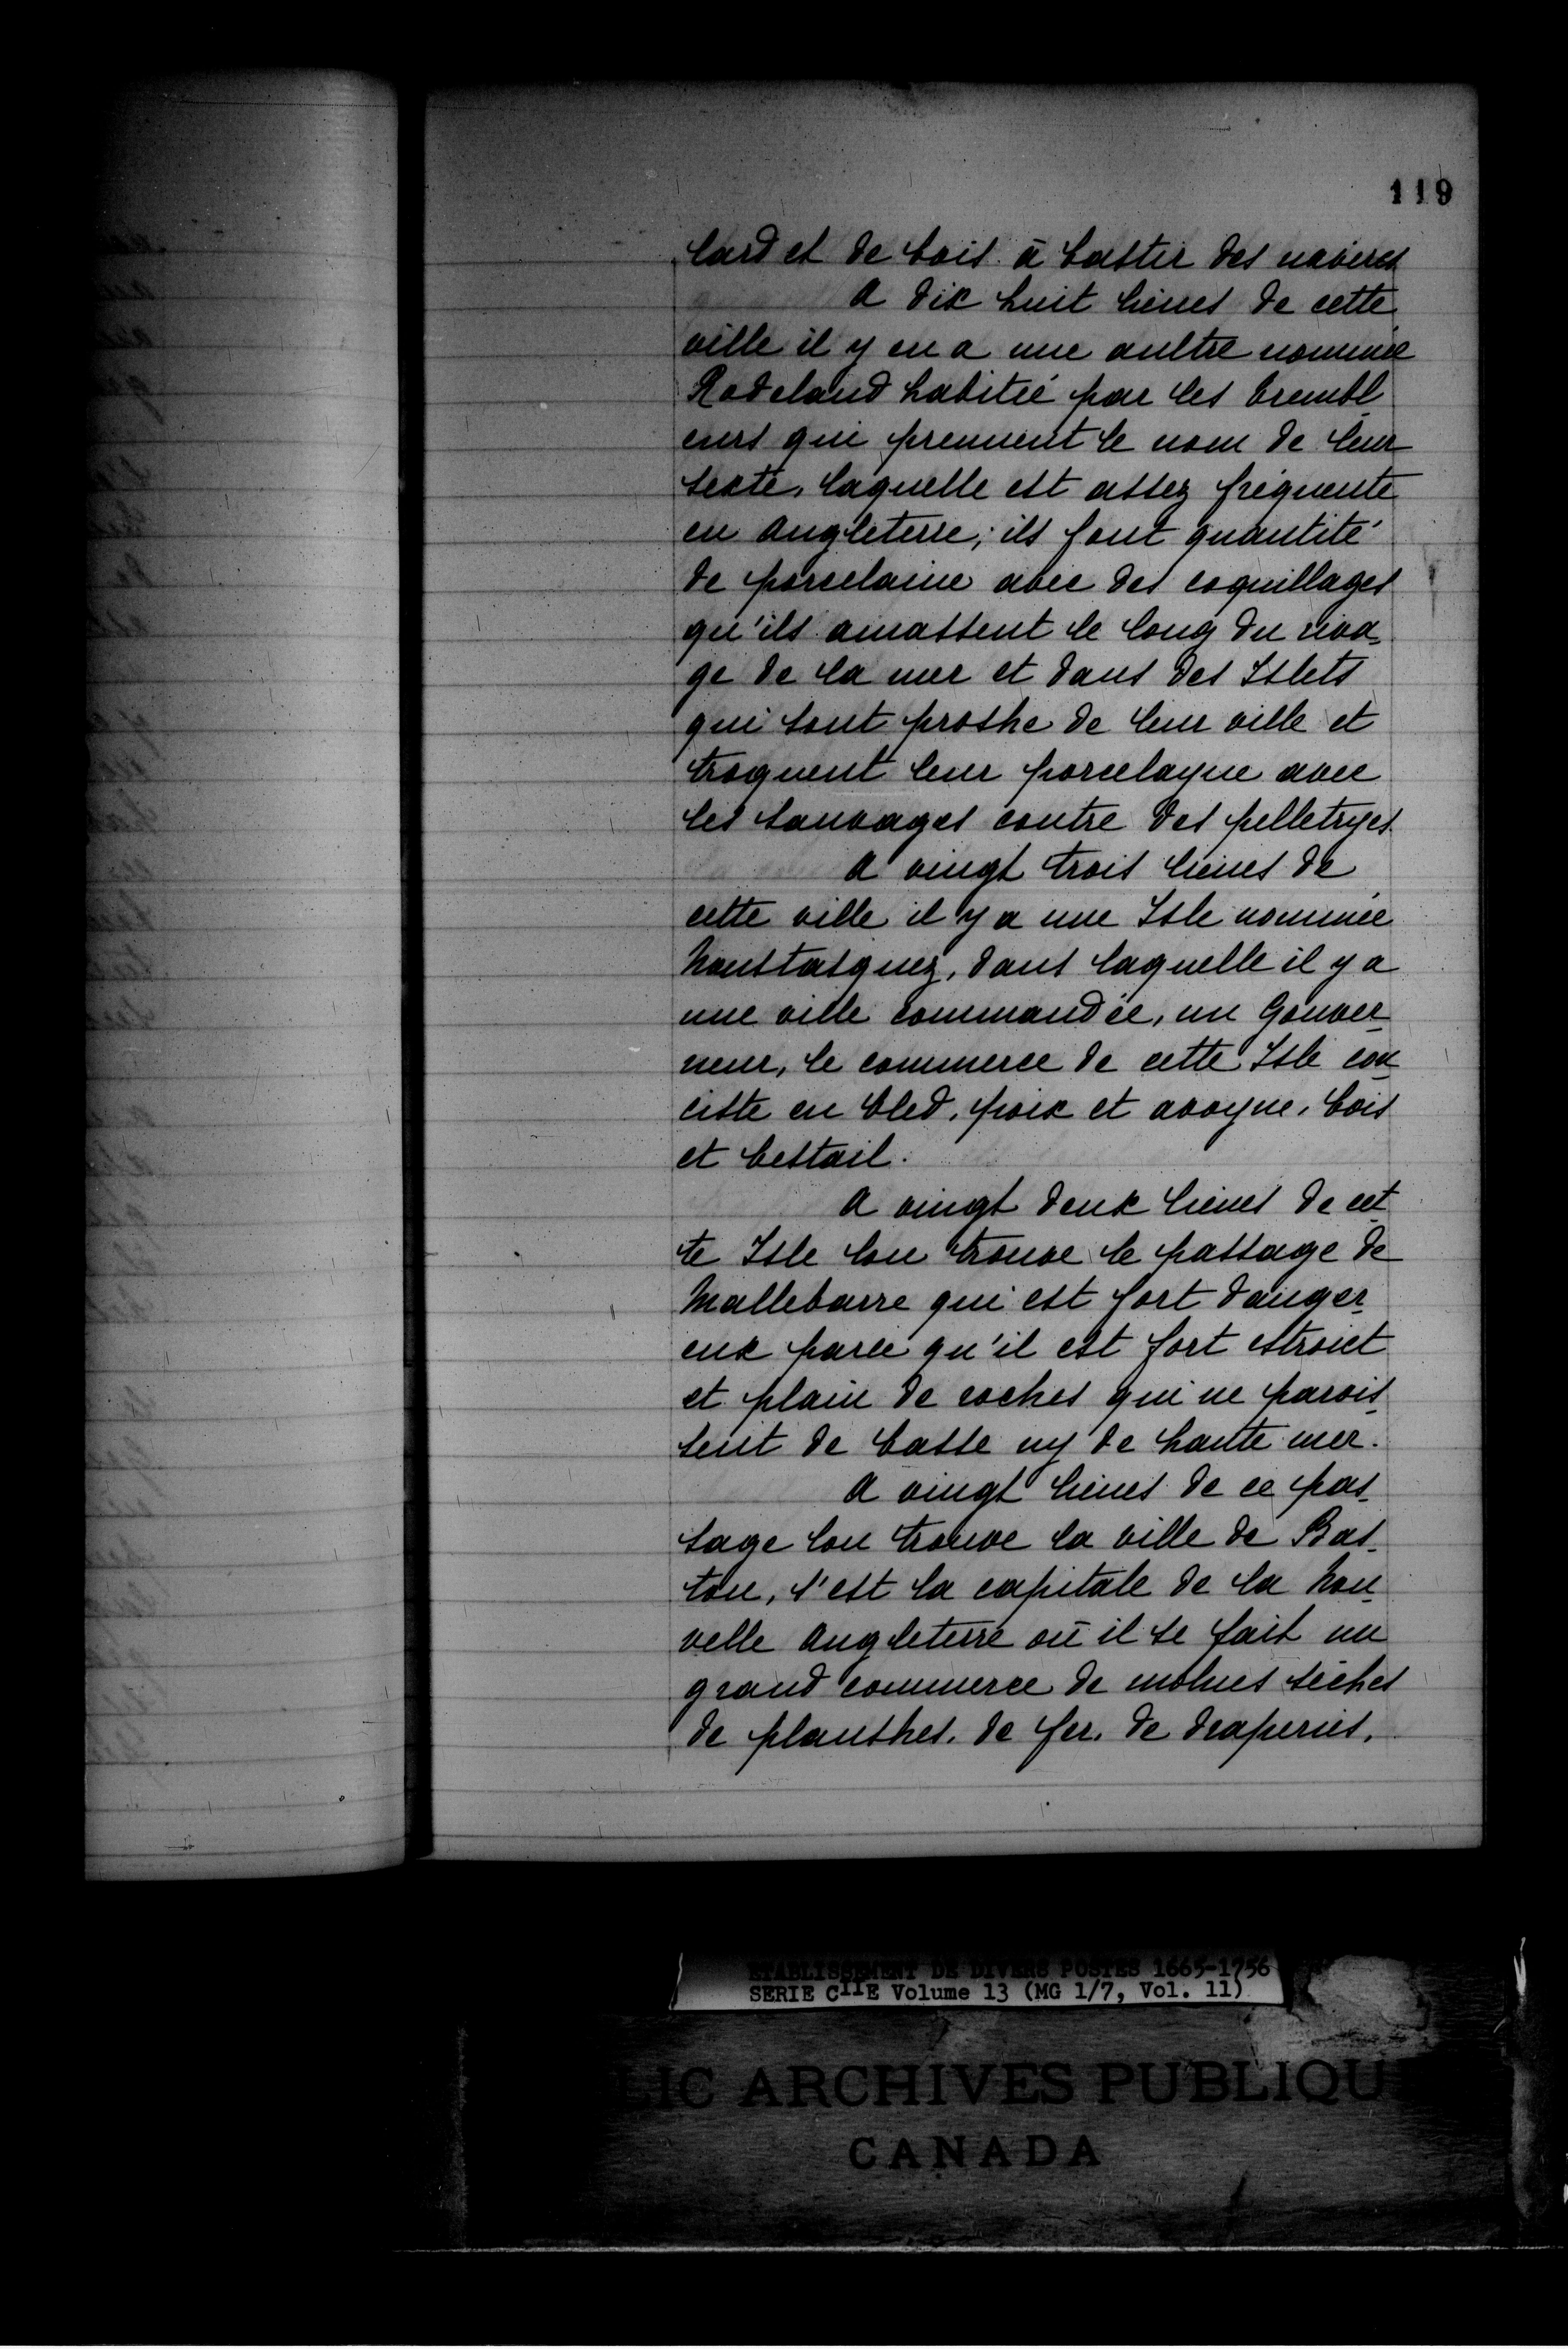 119
lard et de bois à bastir des navires
A dix huit lieues de cette
ville il y en a une aultre nommée
Rodeland habitée par les trembl
eurs qui prennent le nom de leur
secte, laquelle est assez fréquente
en Angleterre; ils font quantité
de porcelaine avec des coquillages
qu'ils amassent le long du riva-
ge de la mer et dans des Islets
qui sont proshe de leur ville et
troquent leur porcelayne avec
les sauvages contre des pelletryes.
A vingt trois lieues de
cette ville il y a une Isle nommée
Noustasquez, dans laquelle il y a
une ville commandée, un Gouver-
neur, le commerce de cette Isle con-
ciste en bled, poix et avoyne, bois
et bestail.
A vingt deux lieues de cet-
te Isle lon trouve le passage de
Mallebarre qui est fort danger-
eux parce qu'il est fort estroict
et plain de roches qui ne parois-
sent de basse ny de haute mer.
A vingt lieues de ce pas-
sage lon trouve la ville de Bas-
ton, s'est la capitale de la Nou-
velle Angleterre où il se fait un
grand commerce de molues sèches
de planshes, de fer, de draperies,
ETABLISSEMENT DE DIVERS POSTES 1665-1756
SERIE CIIE Volume 13 (MG 1/7, Vol. 11)
LIC ARCHIVES PUBLIQU
CANADA